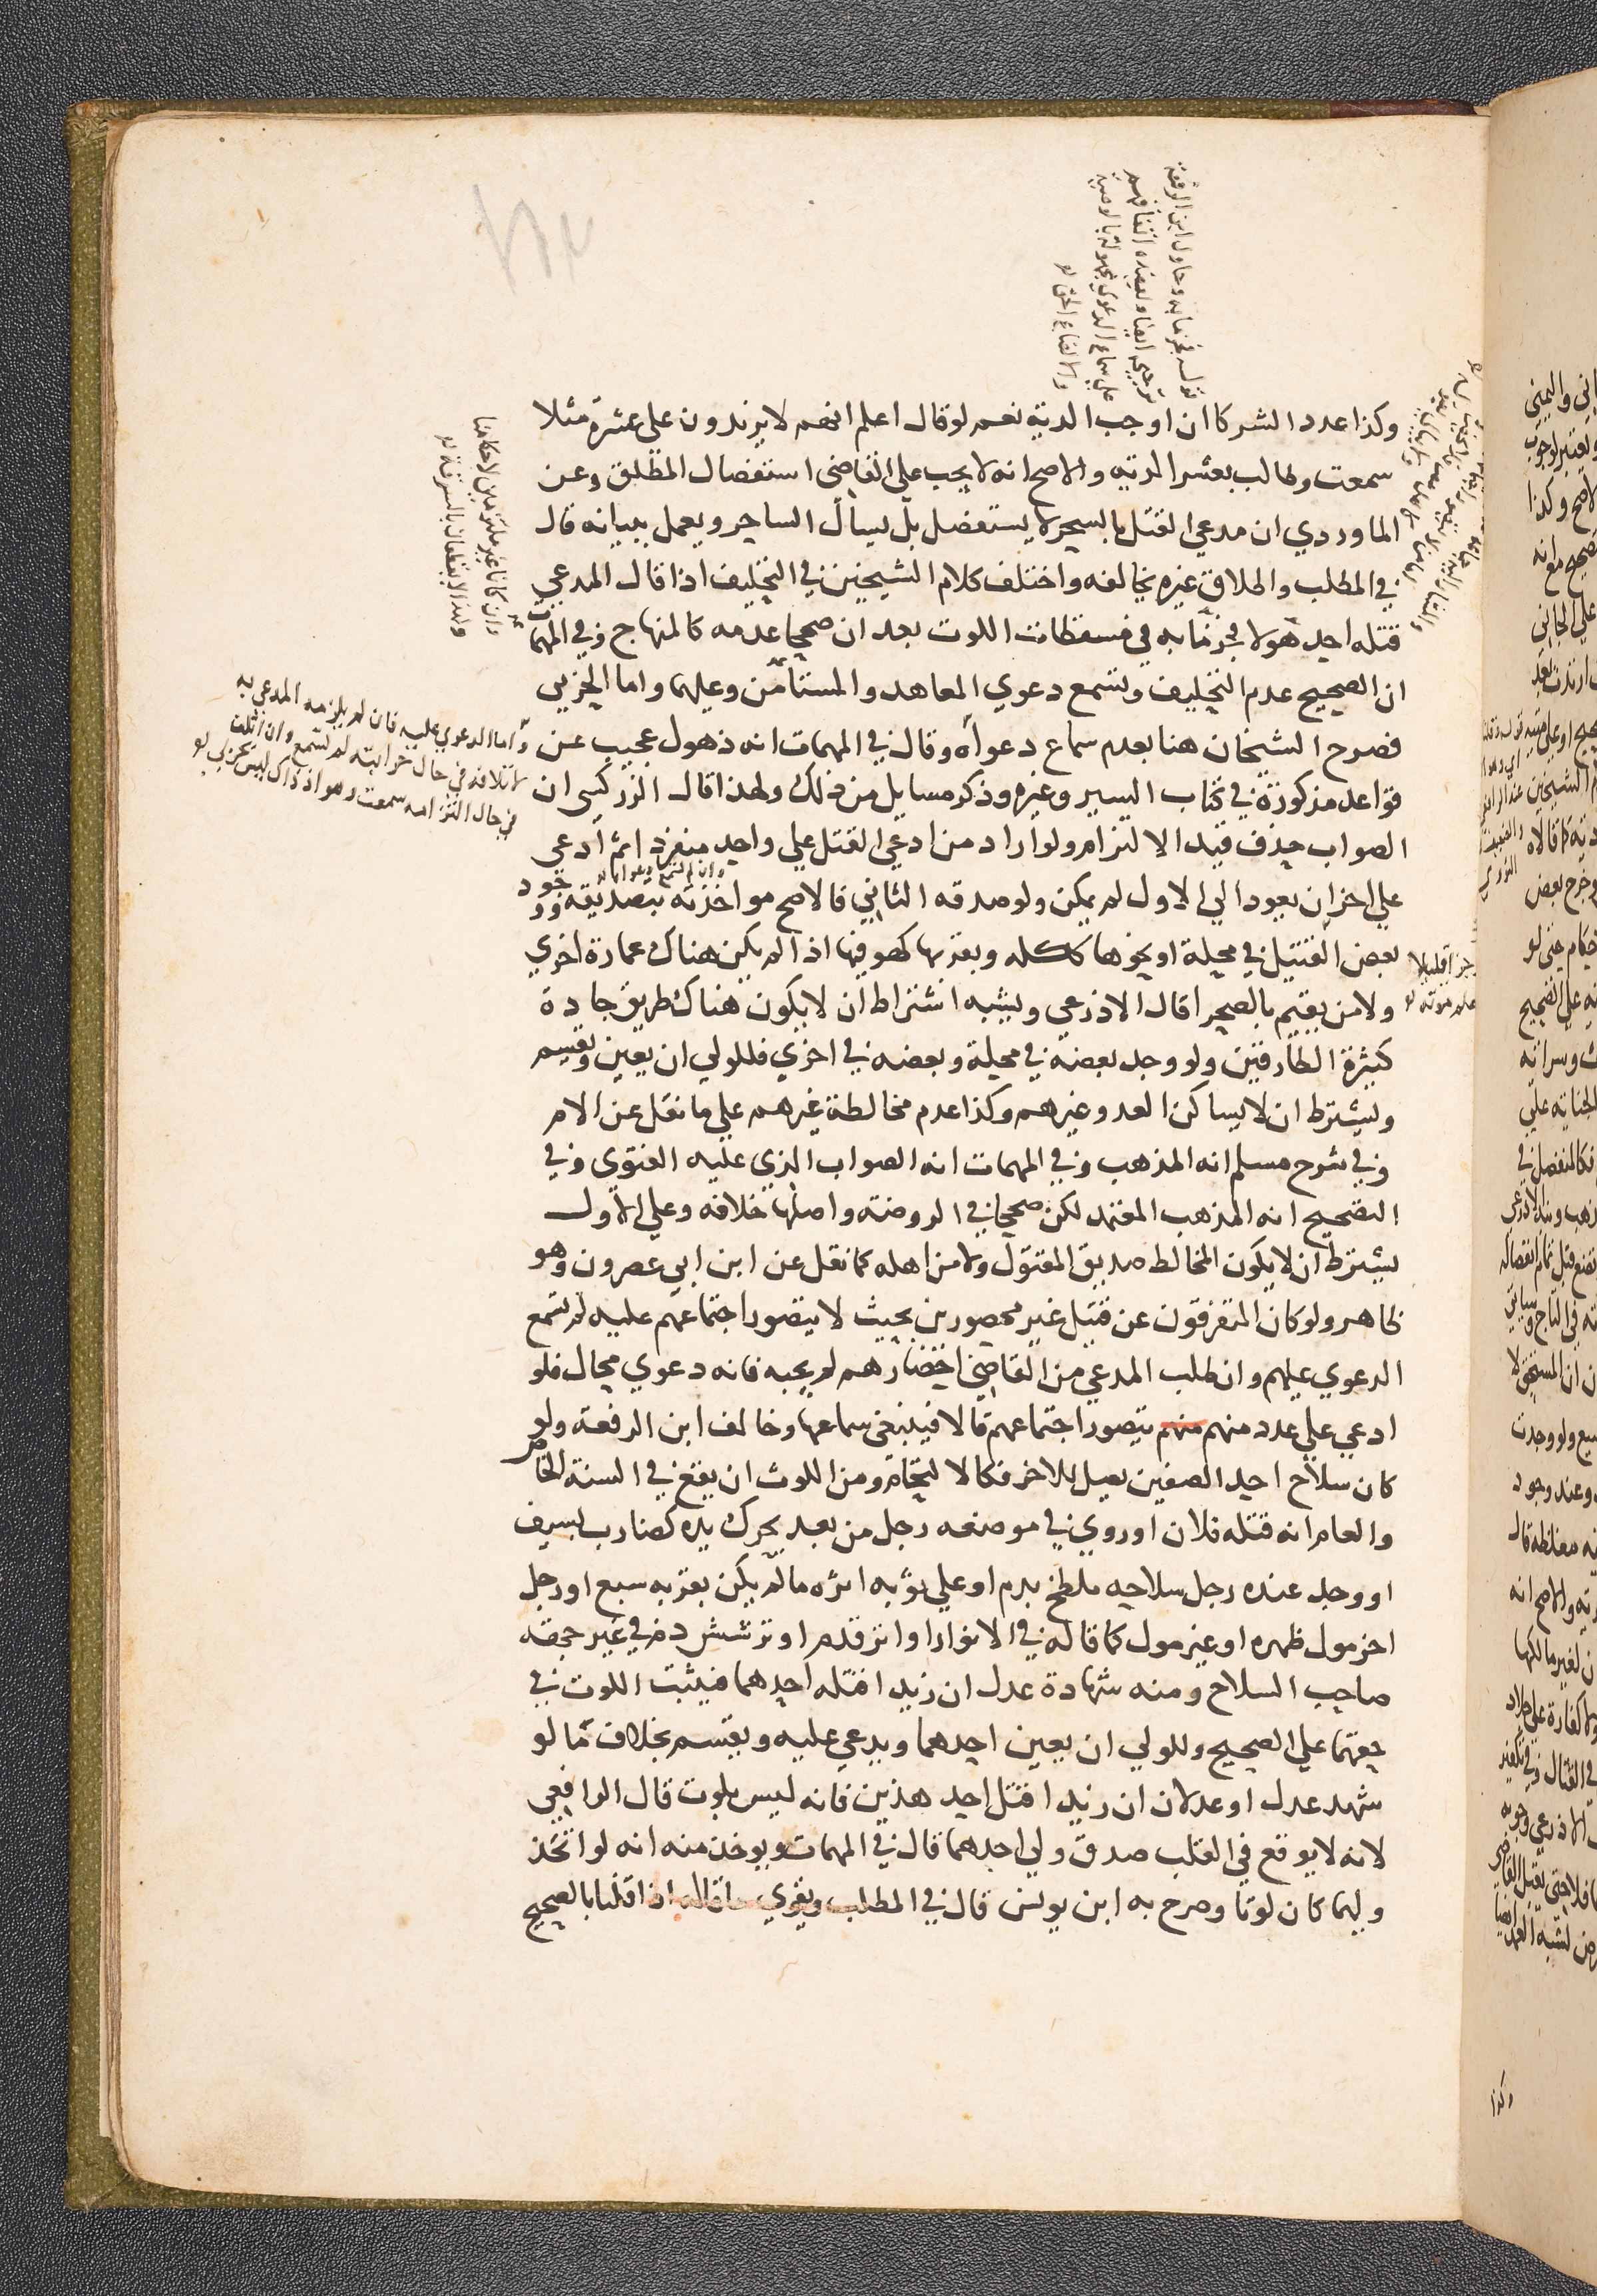 وكذا عدد الشركا ان اوجب الدية نعم لو قال اعلم انهم لا يزيدون على عشرة مثلا
سمعت وطالب بعشر الدية والاصح انه لا يجب على القاضي استفصال المطلق وعن
الماوردي ان مدعي القتل بالسحر لا يستفصل بل يسال الساحر ويعمل ببيانه قال
في المطلب واطلاق غيره يخالفه واختلف كلام الشيخين في التحليف اذا قال المدعي
قتله احد هولا فجزما به في مسقطات اللوث بعد ان صححا عدمه كالمنهاج وفي المهمات
ان الصحيح عدم التحليف وتسمع دعوي المعاهد والمستامن وعليهما واما الحربي
فصرح الشيخان هنا بعدم سماع دعواه وقال في المهمات انه ذهول عجيب عن
قواعد مذكورة في كتاب السير وغيره وذكر مسايل من ذلك ولهذا قال الزركشي ان
الصواب حذف قيد الالتزام ولو اراد من ادعي القتل علي واحد منفردا ثم ادعي
علي اخر ان يعود الي الاول لم يمكن ولو صدقه الثاني فالاصح مواخذته بتصديقه ووجود
بعض القتيل في محلة او نحوها ككله وبقربها كهو فيها اذا لم يكن هناك عمارة اخري
ولا من يقيم بالصحرا قال الاذرعي ويشبه اشتراط ان لا يكون هناك طريق جادة
كثيرة الطارقين ولو وجد بعضه في محلة وبعضه في اخري فللولي ان يعين ويقسم
ويشترط ان لا يساكن العدو غيرهم وكذا عدم مخالطة غيرهم علي ما نقل عن الام
وفي شرح مسلم انه المذهب وفي المهمات انه الصواب الذي عليه الفتوى وفي
التصحيح انه المذهب المعتمد لكن صححا في الروضة واصلها خلافه وعلي الاول
يشترط ان لا يكون المخالط صديق المقتول ولا من اهله كما نقل عن ابن ابي عصرون وهو
ظاهر ولو كان المتفرقون عن قتيل غير محصورين بحيث لا يتصور اجتماعهم عليه لم تسمع
الدعوي عليهم وان طلب المدعي من القاضي احضارهم لم يجبه فانه دعوي محال فلو
ادعي علي عدد منهم منهم يتصور اجتماعهم قالا فينبغي سماعها وخالف ابن الرفعة ولو
كان سلاح احد الصفين يصل للاخر فكالالتحام ومن اللوث ان يقع في السنة الخاص
والعام انه قتله فلان او روي في موضعه رجل من بعد يحرك يده كضارب بسيف
او وجد عنده رجل سلاحه ملطخ بدم او علي ثوبه اثره ما لم يكن بقربه سبع او رجل
اخر مول ظهره او غير مول كما قاله في الانوار او اثر قدم او ترشش دم في غير جهة
صاحب السلاح ومنه شهادة عدل ان زيدا قتله احدهما فيثبت اللوث في
حقهما علي الصحيح وللولي ان يعين احدهما ويدعي عليه ويقسم بخلاف ما لو
شهد عدل او عدلان ان زيدا قتل احد هذين فانه ليس بلوث قال الرافعي
لانه لا يوقع في القلب صدق ولي احدهما قال في المهمات ويوخذ منه انه لو اتحد
وليهما كان لوثا وصرح به ابن يونس قال في المطلب ويقوي ما قاله اذا قلنا بالصحيح
قوله فجزما به وحاول ابن الرفعة
وان كانا غير ملتزمين لاحكامنا
ولهذا لا يقطعان بالسرقة
واما الدعوي عليه فان لم يلزمه المدعي به
لاتلافه في حال حرابته لم تسمع وان اتلف
في حال التزامه سمعت وهو اذ ذاك ليس بحربي
وكذا